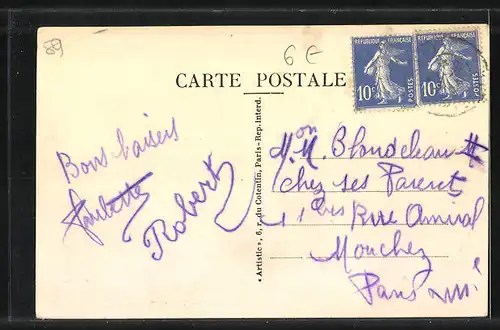 89
6 €
CARTE POSTALE
REPUBLIQUE FRANÇAISE
10c
POSTES
REPUBLIQUE FRANÇAISE
10c
POSTES
Bons baisers
Paulette
Robert
« Artistic », 6, r. du Cotentin, Paris - Rep. Interd.
Mon M. Blondeau
chez ses Parents
11 bis Rue Amiral
Mouchez
Paris XIII